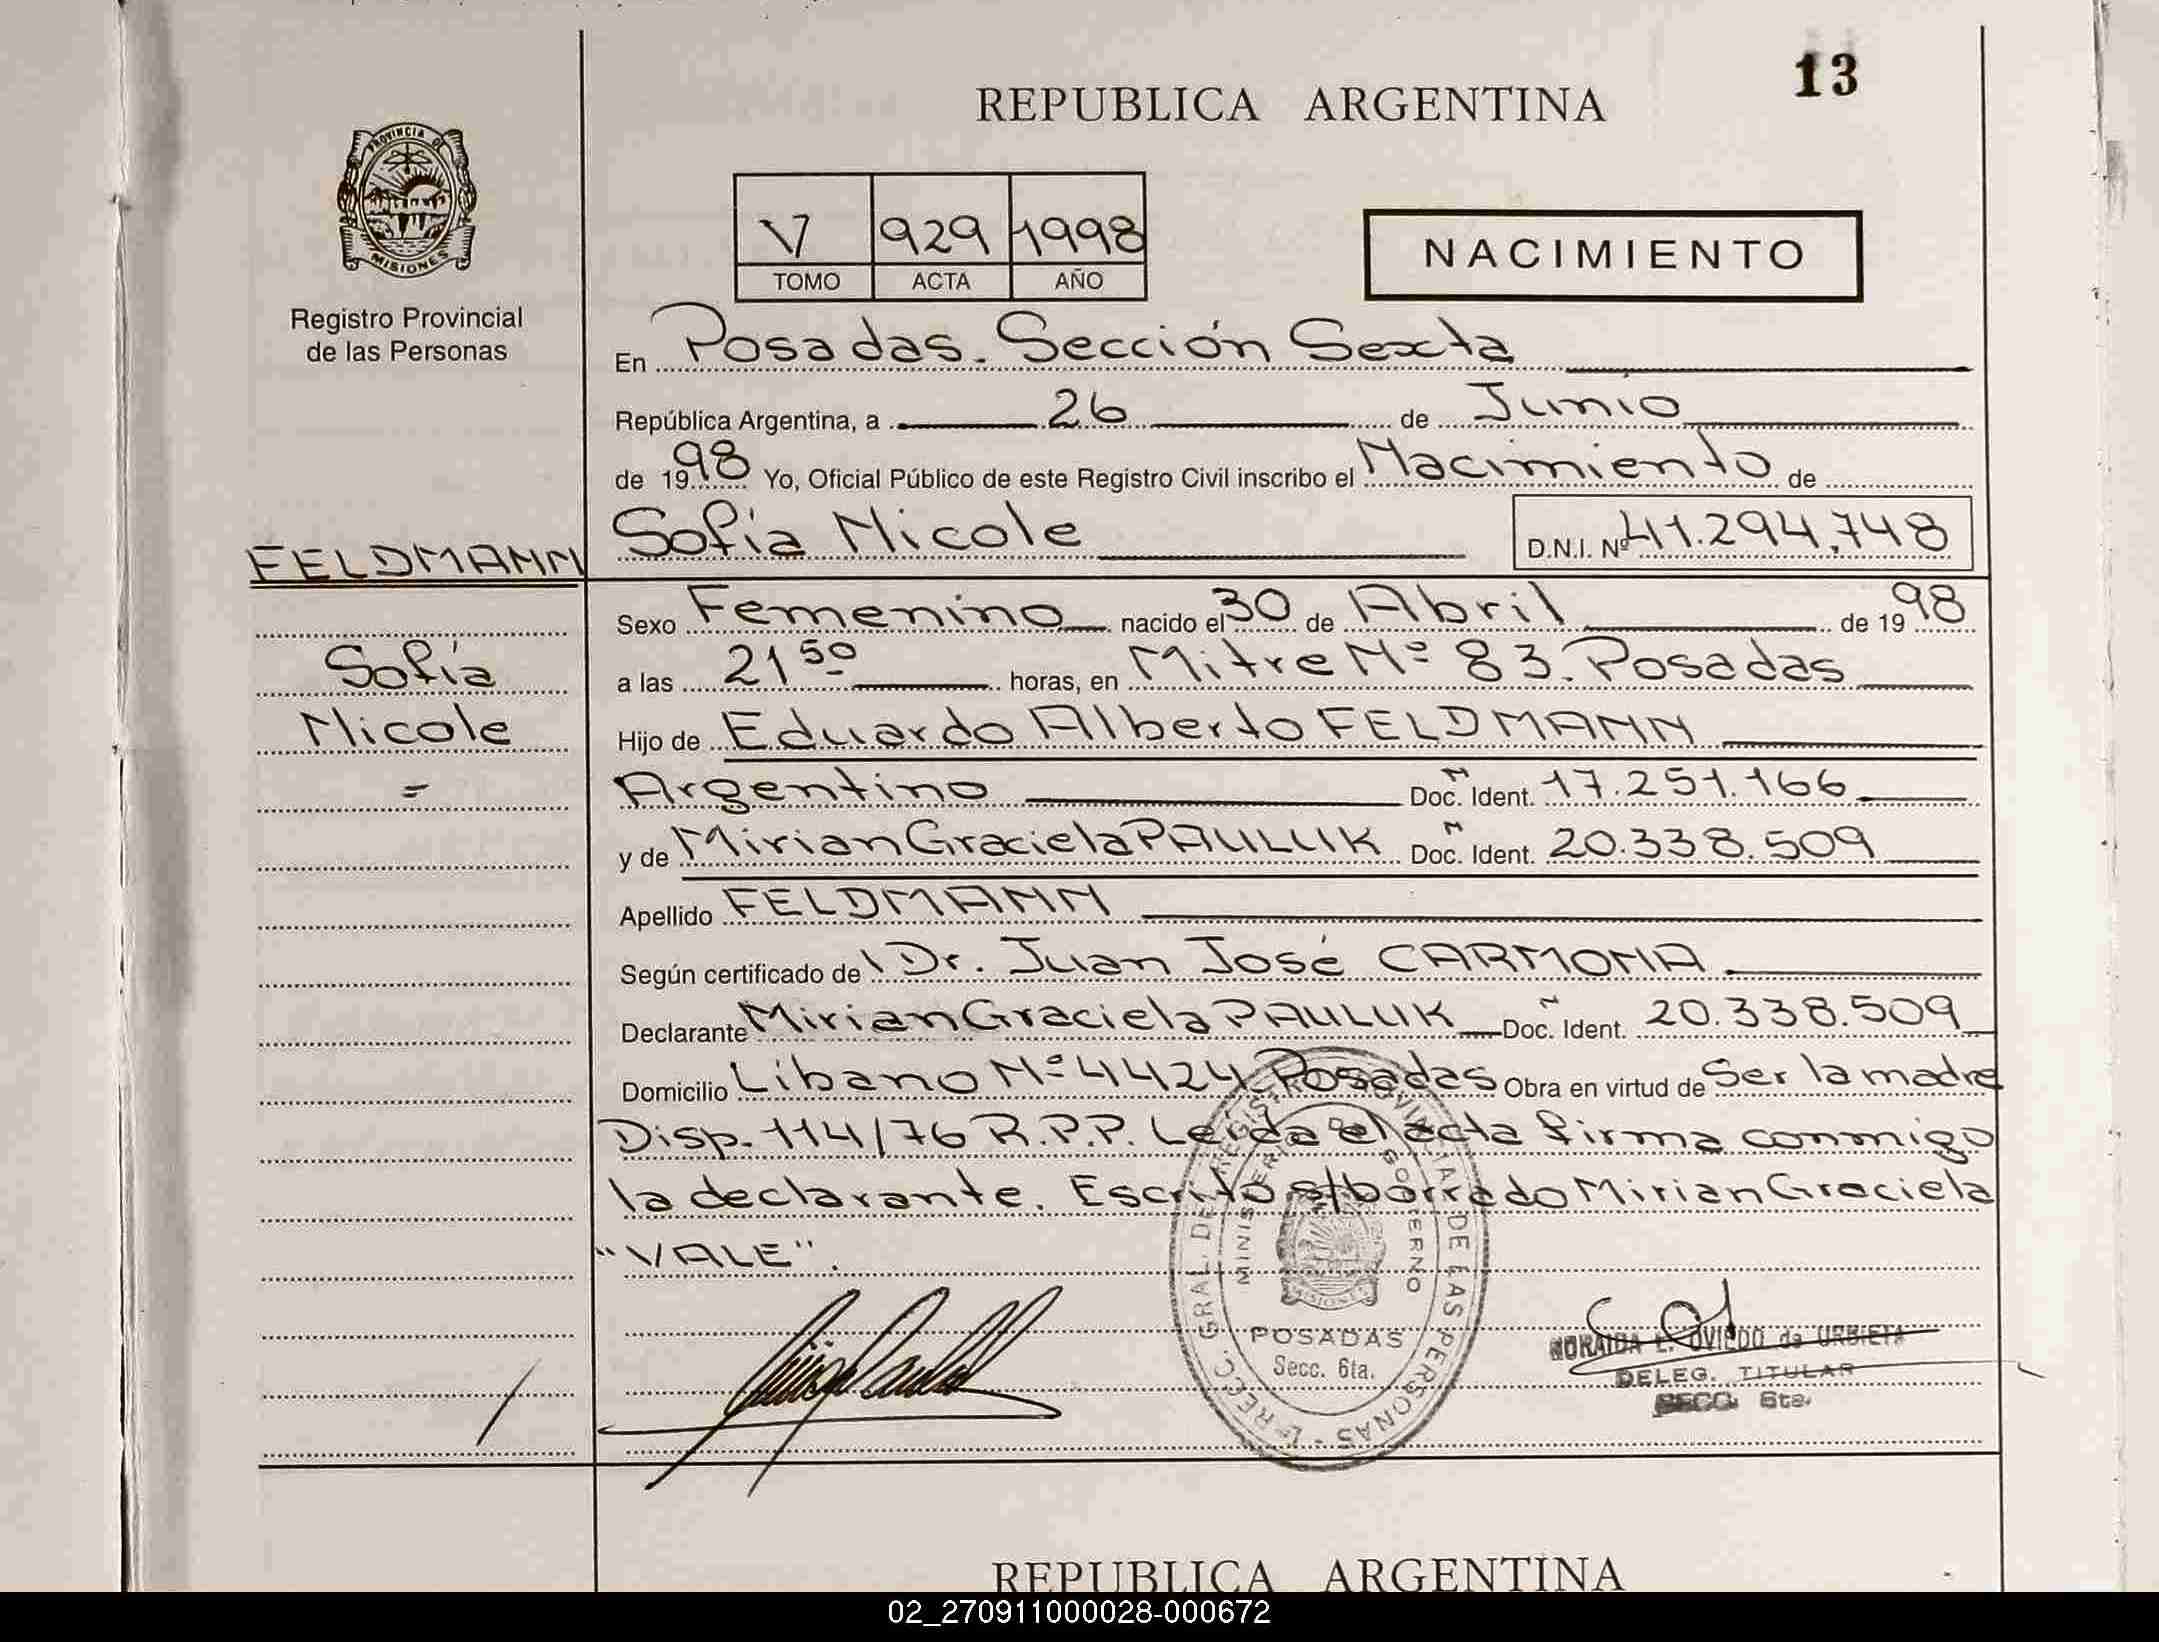 13
REPUBLICA ARGENTINA
PROVINCIA DE
MISIONES
Registro Provincial
de las Personas
V 929 1998
TOMO ACTA AÑO
NACIMIENTO
En Posadas. Sección Sexta
República Argentina, a 26 de Junio
de 1998 Yo, Oficial Público de este Registro Civil inscribo el Nacimiento de
FELDMANN Sofía Nicole D.N.I. Nº 41.294.748
Sexo Femenino nacido el 30 de Abril de 1998
Sofía
a las 21 50 horas, en Mitre Nº 83. Posadas
Nicole
Hijo de Eduardo Alberto FELDMANN
Argentino Doc. N Ident. 17.251.166
y de Mirian Graciela PAULUK Doc. N Ident. 20.338.509
Apellido FELDMANN
Según certificado de Dr. Juan José CARMONA
Declarante Mirian Graciela PAULUK Doc. N Ident. 20.338.509
Domicilio Líbano Nº 4424 Posadas Obra en virtud de Ser la madre
Disp. 114/76 R.P.P. Leída el acta firma conmigo
la declarante. Escrito s/borrado Mirian Graciela
"VALE".
REGISTRO PROVINCIAL DE LAS PERSONAS
MINISTERIO DE GOBIERNO
MISIONES
POSADAS
Secc. 6ta.
E. OVIEDO de URBIETA
DELEG. TITULAR
SECC. 6ta.
REPUBLICA ARGENTINA
02_270911000028-000672